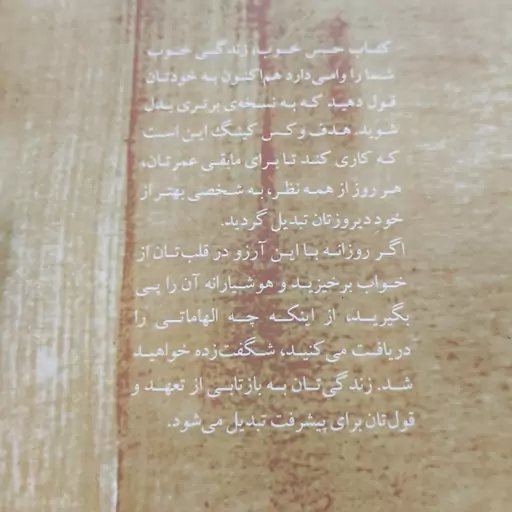 کتاب حس خوب، زندگی خوب
شما را وامی‌دارد هم‌اکنون به خودتان
قول دهید که به نسخه‌ی برتری بدل
شوید. هدف وکس کینگ این است
که کاری کند تا برای مابقی عمرتان،
هر روز از همه نظر، به شخصی بهتر از
خود دیروزتان تبدیل گردید.
اگر روزانه با این آرزو در قلب‌تان از
خواب برخیزید و هوشیارانه آن را پی
بگیرید، از اینکه چه الهاماتی را
دریافت می‌کنید، شگفت‌زده خواهید
شد. زندگی‌تان به بازتابی از تعهد و
قول‌تان برای پیشرفت تبدیل می‌شود.